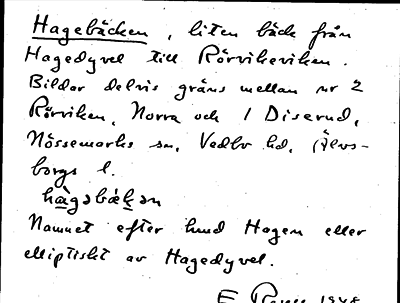 Hagebäcken, liten bäck från
Hagedyvel till Rörvikeviken.
Bildar delvis gräns mellan nr 2
Rörviken, Norra och 1 Diserud,
Nössemarks sn, Vedbo hd, Älvs-
borgs l.
hagəbäkən
Namnet efter hmd Hagen eller
elliptiskt av Hagedyvel.
E 1948